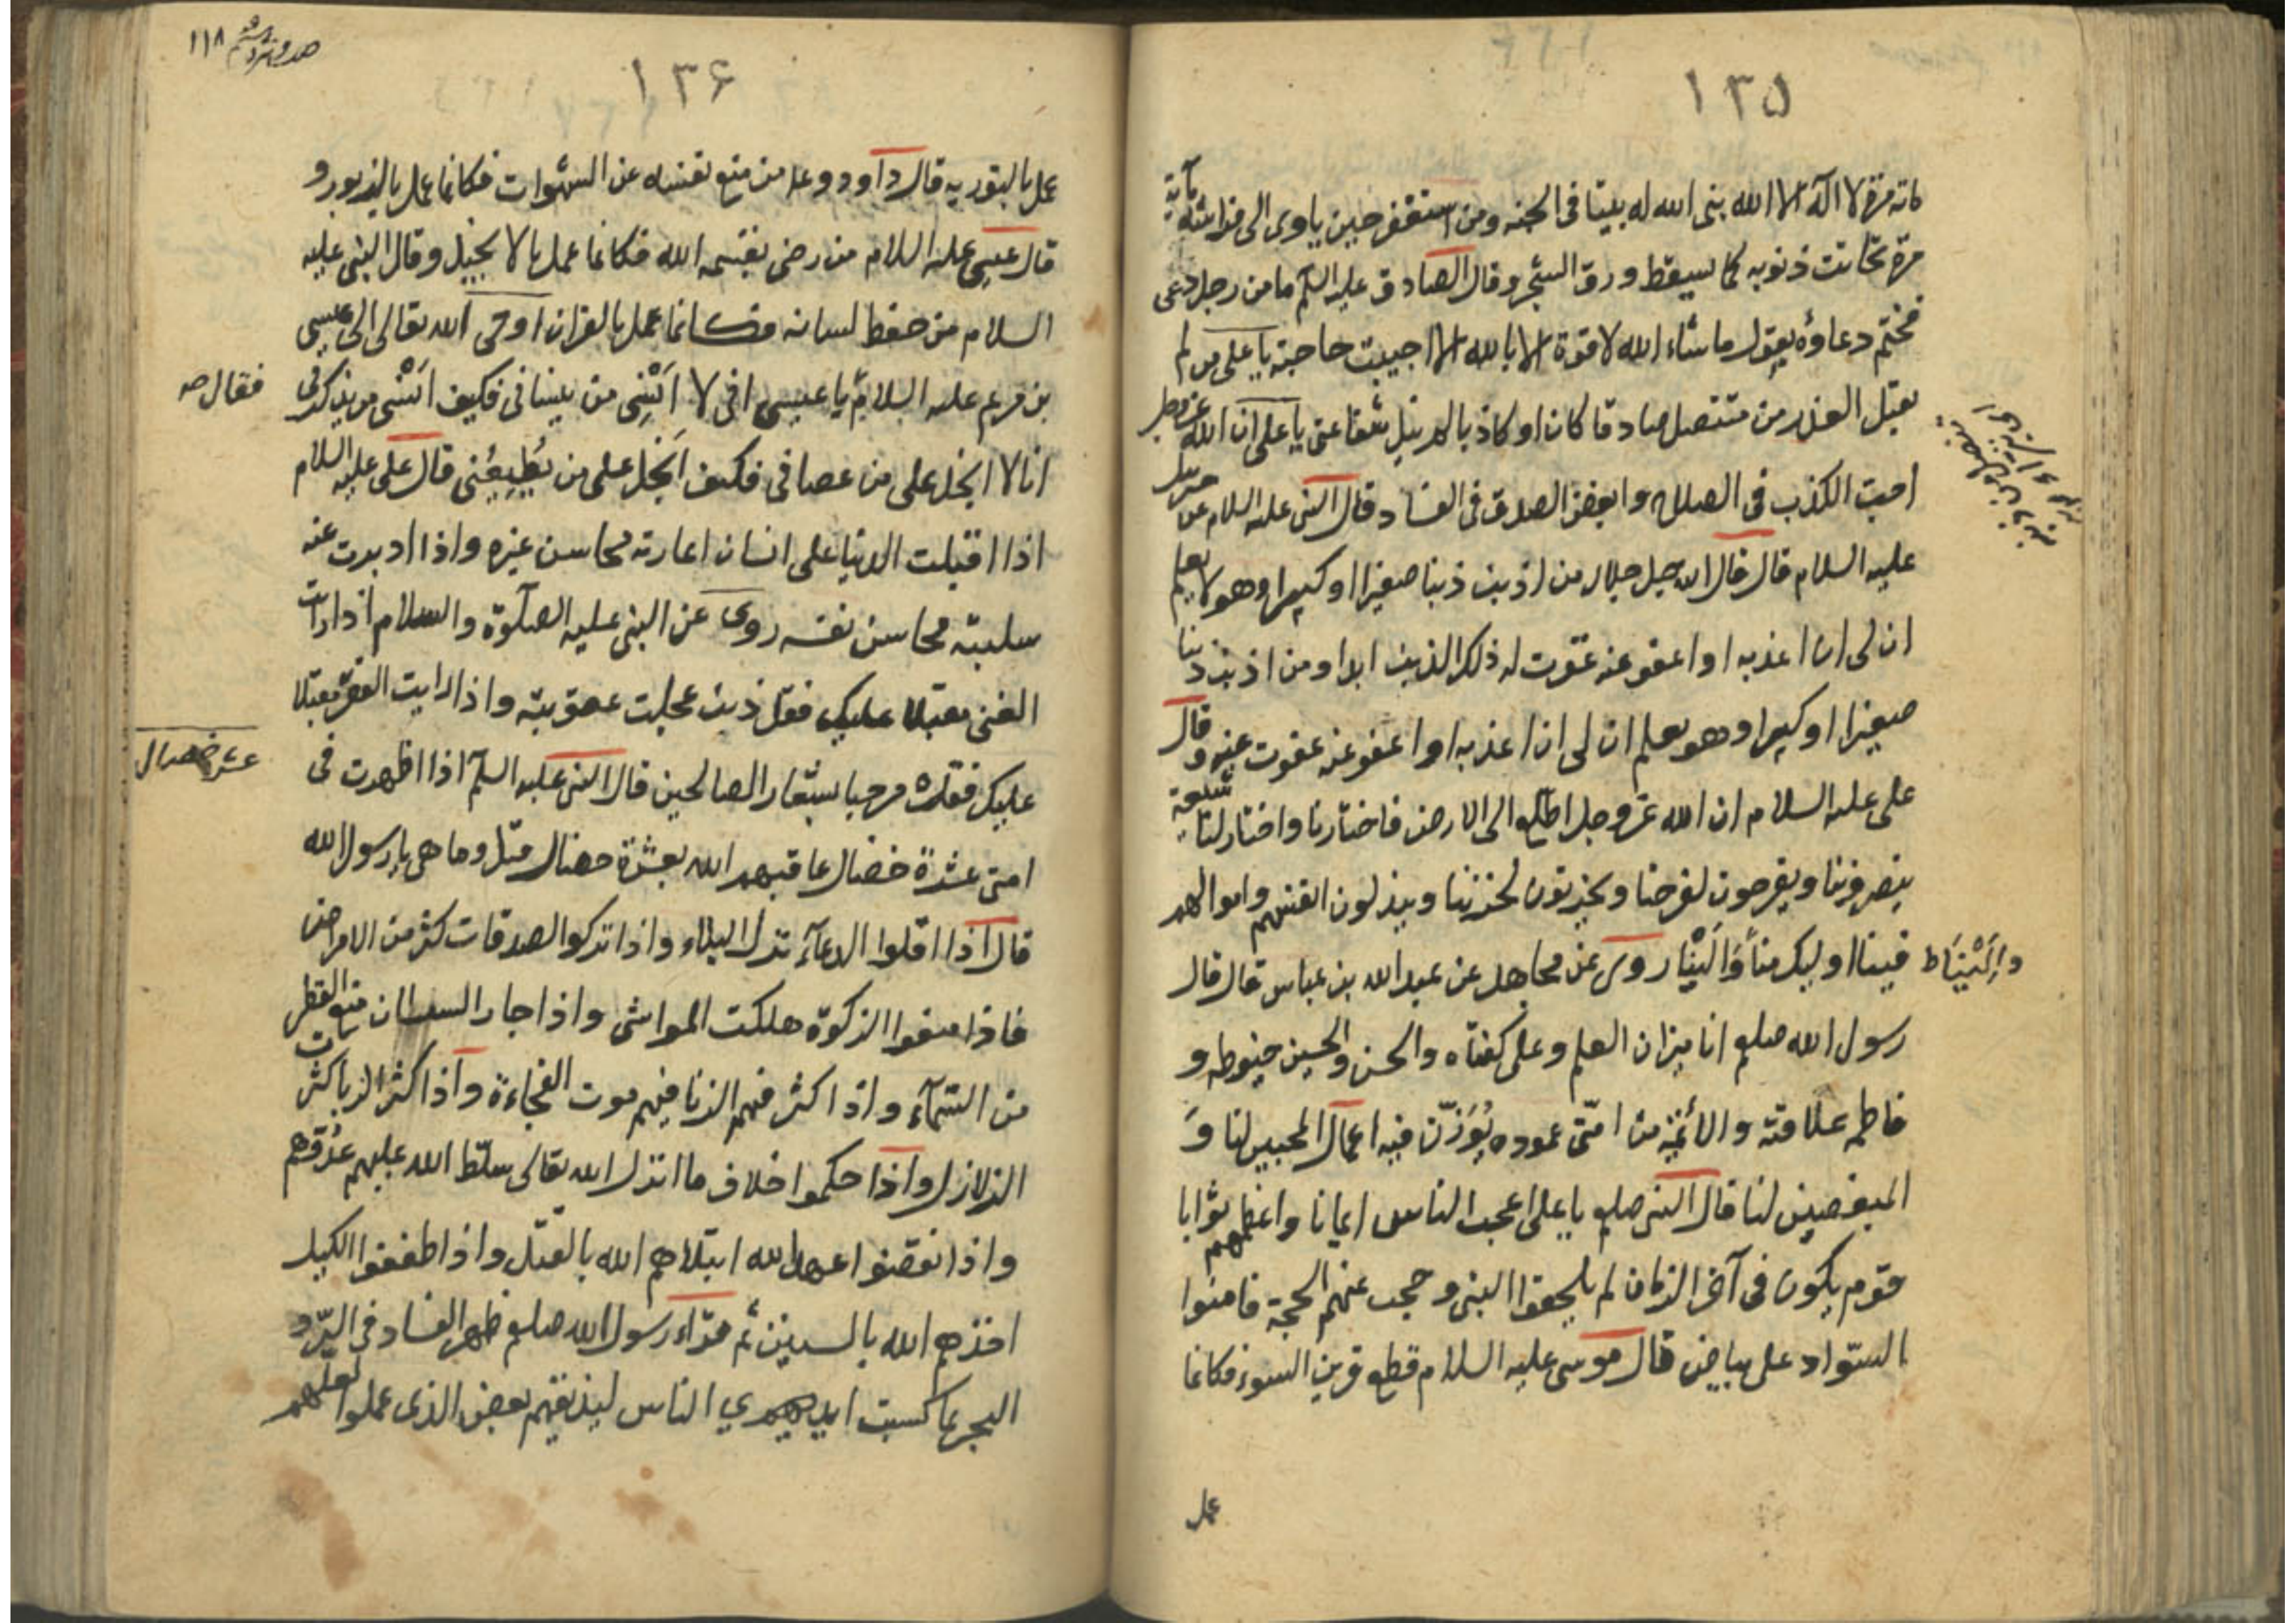 ١٣٥
مائة مرة لا اله الا الله بنى الله له بيتا فى الجنه ومن استغفر حين ياوى الى فراشه مأية
مرة تحاتت ذنوبه كما سيقط ورق الشجر وقال الصادق عليه السلم ما من رجل دعى
فختم دعاؤه بقول ما شاء الله لا قوة الا بالله الا اجيبت حاجته يا على من لم
يقبل العذر من متنصل صادقا كان او كاذبا لم ينل شفاعتى يا على ان الله عز وجل
احبت الكذب فى الصلاح وابغض الصدق فى الفساد قال النبى عليه السلام عن جبرئيل
عليه السلام قال قال الله جل جلاله من اذنب ذنبا صغيرا او كبيرا وهو لا يعلم
ان لى ان اعذبه او اعفو عنه غفرت له ذلك الذنب ابدا ومن اذنب ذنبا
صغيرا او كبيرا وهو يعلم ان لى ان اعذبه او اعفو عنه عفوت عنه وقال
على عليه السلام ان الله عز وجل اطلع الى الارض فاختارنا واختار لنا شيعة
ينصروننا ويفرحون لفرحنا ويحزنون لحزننا ويبذلون انفسهم واموالهم
فينا اوليك منا والينا روى عن مجاهد عن عبد الله بن عباس قال قال
والينا ط
رسول الله صلعم انا ميزان العلم وعلى كفتاه والحسن والحسين خيوطه و
فاطمه علاقته والائمة من امتى عموده يوزن فيه اعمال المحبين لنا و
المبغضين لنا قال النبى صلعم يا على اعجب الناس ايمانا واعظمهم ثوابا
قوم يكون فى آخر الزمان لم يلحقوا النبى وحجب عنهم الحجة فامنوا
السواد على بياض قال موسى عليه السلام من قطع قرين السوء فكانما
عمل
١١٨
١٣۶
عمل بالتوريه قال داود وعلـ من منع نفسه عن الشهوات فكانما عمل بالزبور و
قال عيسى عليه السلام من رضى بقسمه الله فكانما عمل بالانجيل وقال النبى عليه
السلام من حفظ لسانه فكانما عمل بالقران اوحى الله تعالى الى عيسى
بن مريم عليه السلام يا عيسى انى لا انسى من ينسانى فكيف انسى من يذكرنى
فقال صه
انا لا ابخل على من عصانى فكيف ابخل على من يطيعنى قال على عليه السلام
اذا اقبلت الدنيا على انسان اعارته محاسن غيره واذا ادبرت عنه
سلبته محاسن نفسه روى عن النبى عليه الصلوة والسلام اذا رايت
الغنى مقبلا عليك فقل ذنب عجلت عقوبته واذا رايت الفقر مقبلا
عليك فقل مرحبا بشعار الصالحين قال النبى عليه السلم اذا اظهرت فى
عشر خصال
امتى عشرة خصال عاقبهم الله بعشرة خصال قيل وما هى يا رسول الله
قال اذا اقلوا الدعاء نزل البلاء واذا تركوا الصدقات كثر من الامراض
فاذا منعوا الزكوة هلكت المواشى واذا جار السلطان منع القطر
من السماء واذا كثر فيهم الزنا فيهم موت الفجاءة واذا كثر الربا كثرت
الزلازل واذا حكموا خلاف ما انزل الله تعالى سلط الله عليهم عدوهم
واذا نقضوا عهد الله ابتلاهم الله بالقتل واذا طففوا الكيل
اخذهم الله بالسنين ثم قراء رسول الله صلعم ظهر الفساد فى البر و
البحر بما كسبت ايدي الناس ليذيقهم بعض الذى عملوا لعلهم